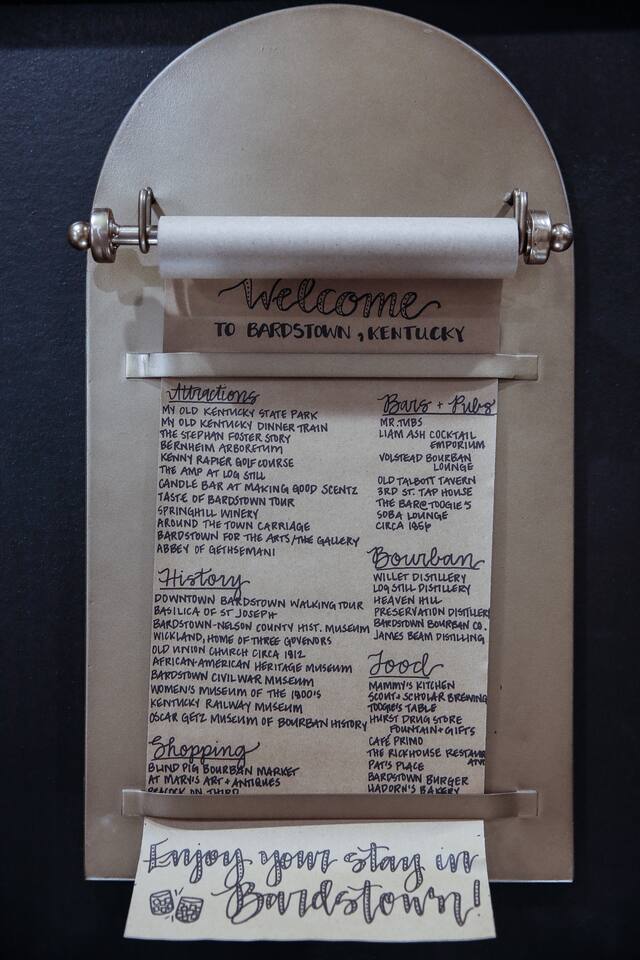 Welcome
TO BARDSTOWN, KENTUCKY
Attractions
MY OLD KENTUCKY STATE PARK
MY OLD KENTUCKY DINNER TRAIN
THE STEPHAN FOSTER STORY
BERNHEIM ARBORETUM
KENNY RAPIER GOLF COURSE
THE AMP AT LOG STILL
CANDLE BAR AT MAKING GOOD SCENTZ
TASTE OF BARDSTOWN TOUR
SPRINGHILL WINERY
AROUND THE TOWN CARRIAGE
BARDSTOWN FOR THE ARTS/THE GALLERY
ABBEY OF GETHSEMANI
History
DOWNTOWN BARDSTOWN WALKING TOUR
BASILICA OF ST JOSEPH
BARDSTOWN-NELSON COUNTY HIST. MUSEUM
WICKLAND, HOME OF THREE GOVENORS
OLD UNION CHURCH CIRCA 1812
AFRICAN-AMERICAN HERITAGE MUSEUM
BARDSTOWN CIVIL WAR MUSEUM
WOMEN'S MUSEUM OF THE 1800'S
KENTUCKY RAILWAY MUSEUM
OSCAR GETZ MUSEUM OF BOURBON HISTORY
Shopping
BLIND PIG BOURBON MARKET
AT MARY'S ART + ANTIQUES
PEACOCK ON THIRD
Bars + Pubs
MR. TUBS
LIAM ASH COCKTAIL
EMPORIUM
VOLSTEAD BOURBAN
LOUNGE
OLD TALBOTT TAVERN
3RD ST. TAP HOUSE
THE BAR@TOOGIE'S
SOBA LOUNGE
CIRCA 1856
Bourban
WILLET DISTILLERY
LOG STILL DISTILLERY
HEAVEN HILL
PRESERVATION DISTILLERY
BARDSTOWN BOURBAN CO.
JAMES BEAM DISTILLING
Food
MAMMY'S KITCHEN
SCOUT + SCHOLAR BREWING
TOOGIE'S TABLE
HURST DRUG STORE
FOUNTAIN + GIFTS
CAFE PRIMO
THE RICKHOUSE
PAT'S PLACE
BARDSTOWN BURGER
HADORN'S BAKERY
Enjoy your stay in
Bardstown!